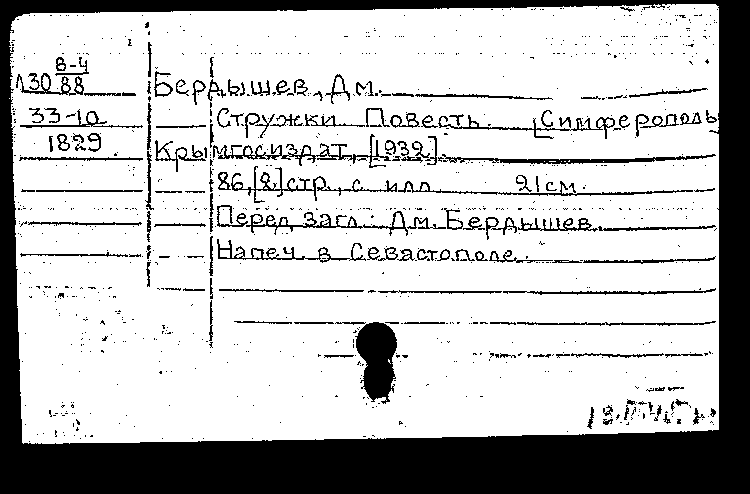 В-4
Л30 88
33-10
1829
Бердышев, Дм.
Стружки. Повесть. [Симферополь
Крымгосиздат, [1932].
86,[2]стр., с илл. 21см.
Перед загл.: Дм. Бердышев.
Напеч. в Севастополе.